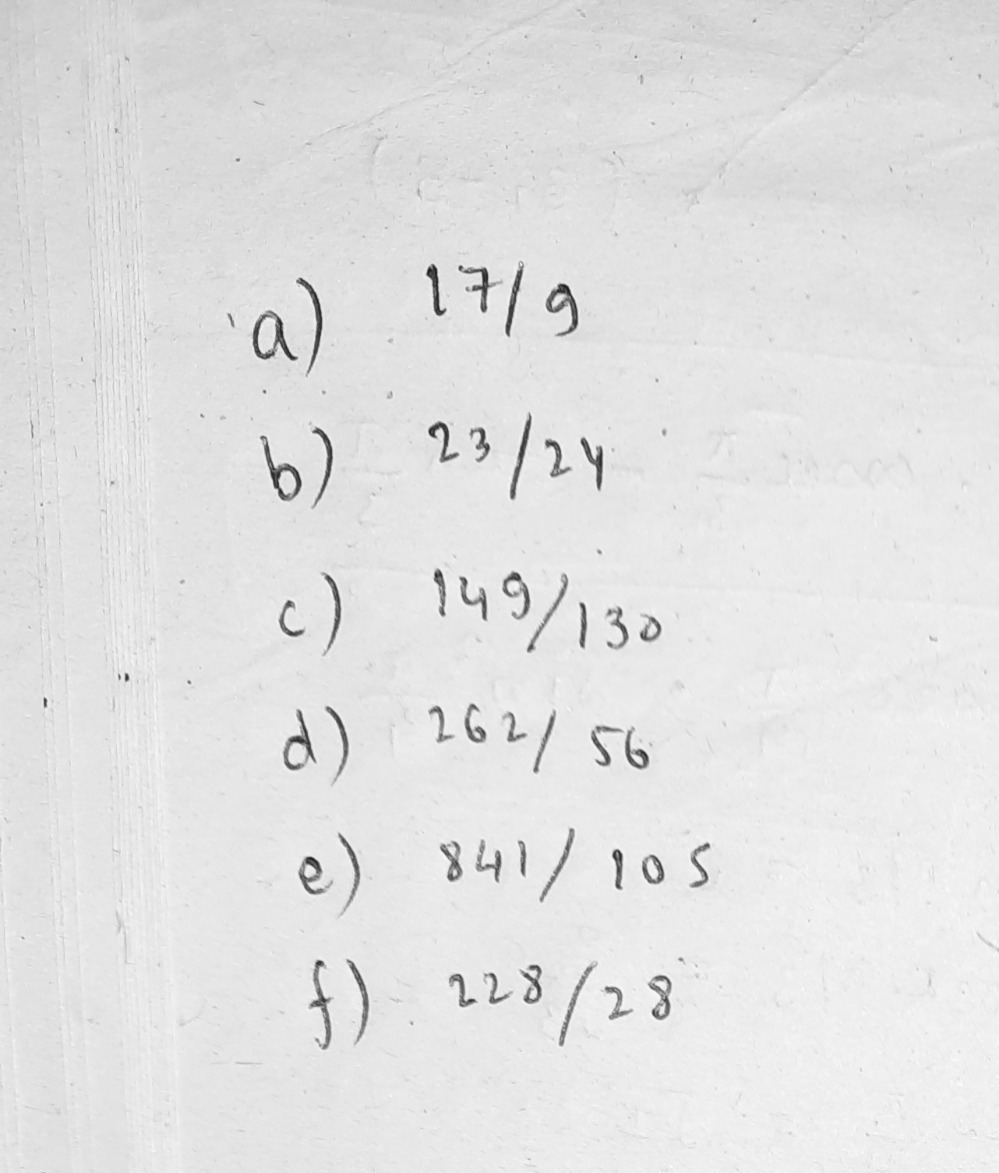 a) 17/9
b) 23/24
c) 149/130
d) 262/56
e) 841/105
f) 228/28